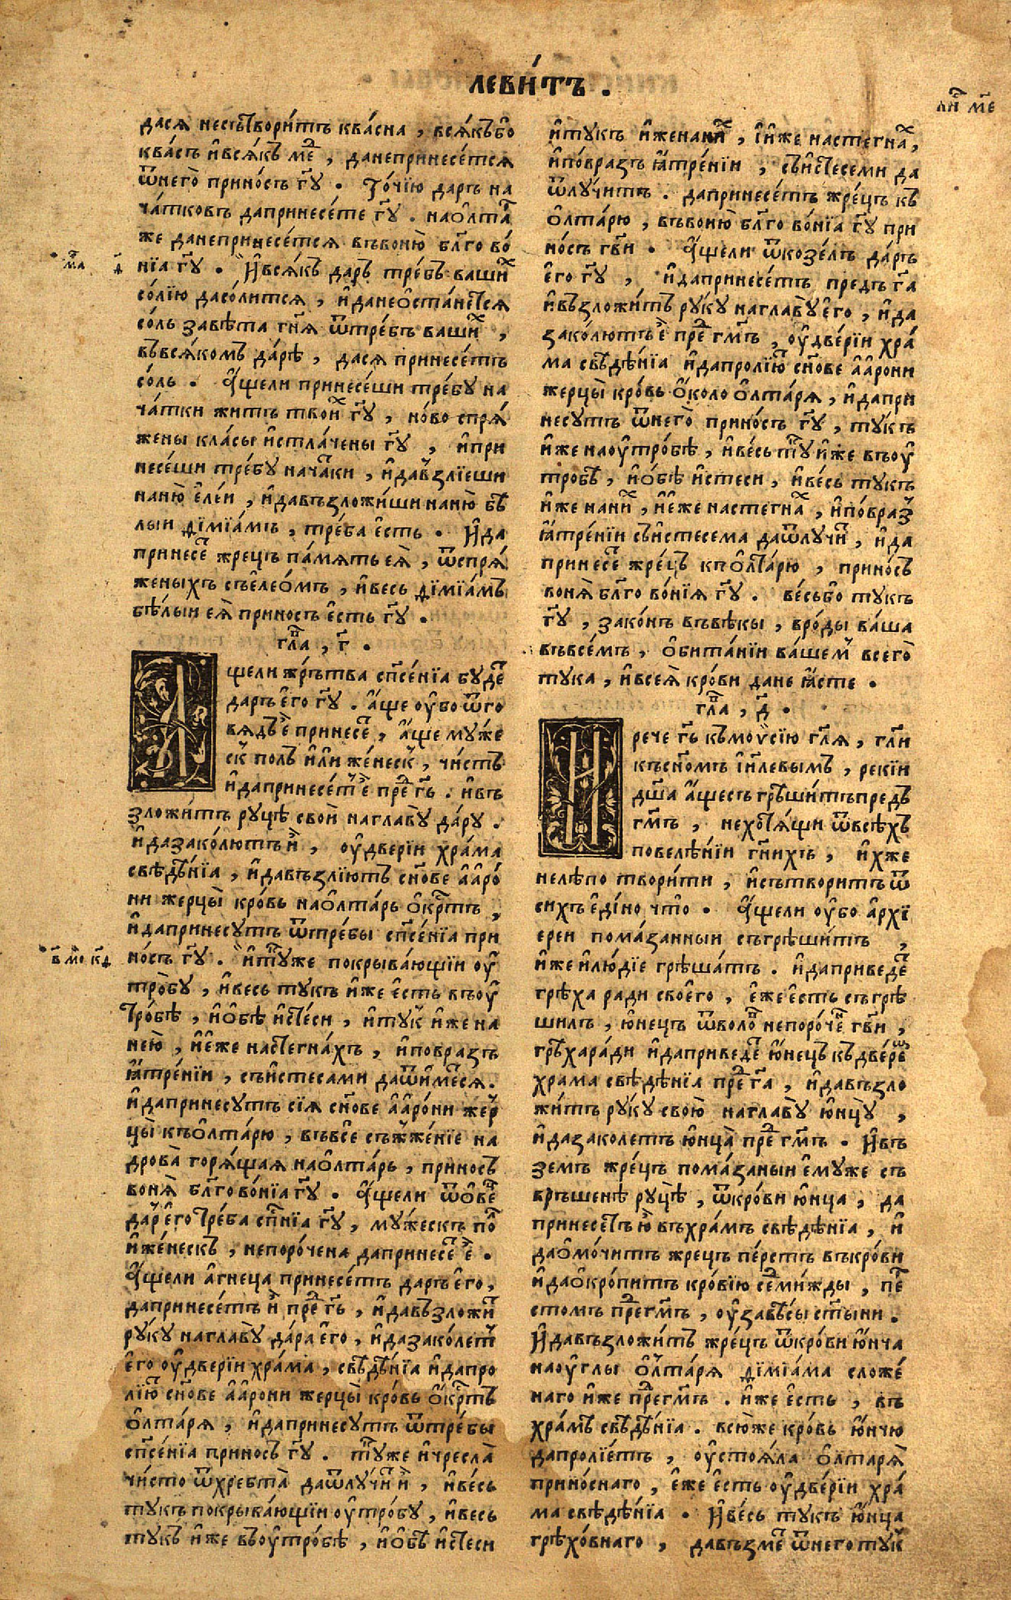 леви́тъ .
дася несътвори́тъ ква́сна , вся́къбо
ква́съ и҆вся́къ ме́д , данепринесе́тся
ѿнего̀ прино́съ гу҃ . То́чїю даръ на
ча́тковъ дапринесе́те гу҃ . наѻлта́р
же данепринесе́тся въвоню̀ бл҃го во́
нїа гу҃ . И҆вся́къ даръ тре́бъ ва́ших
со́лїю дасо́лится , и҆данеѻста́нется
со́ль заве́та гн҃я ѿтре́бъ ва́ших ,
въвся́комъ да́рѣ , дася принесе́тъ
со́ль . А҆́щели принесе́ши тре́бу на
ча́тки жи́тъ твои́х гу҃ , но́во спря́
жены кла́сы и҆стлаче́ны гу҃ , и҆при
несе́ши тре́бу нача́тки , и҆давъзлїе́ши
наню̀ е҆ле́и , и҆давъзложи́ши наню̀ бѣ́
лыи ѳїмїа́мъ , тре́ба е҆́сть . И҆да
принесе́т жре́цъ па́мять ея̀ , ѿспря́
женыхъ съелео́мъ , и҆ве́сь ѳїмїа́мъ
бѣ́лыи ея̀ прино́съ е҆́сть гу҃ .
гл҃а , г҃ .
А҆щели же́рътва сп҃се́нїа бу́дет
даръ е҆го̀ гу҃ . а҆́ще у҆́бо ѿго
вя́дъ е҆̀ принесе́т , а҆́ще му́же
ск по́лъ и҆лѝ же́неск , чи́стъ
и҆дапринесе́т е҆̀ пред гм҃ъ . и҆въ
зложи́тъ ру́цѣ своѝ наглаву̀ да́ру .
и҆дазако́лютъ и҆̀ , у҆две́рїи хра́ма
свѣдѣ́нїа , и҆давъзлїю́тъ сн҃ове а҆аро́
ни жерцы̀ кро́вь наѻлта́рь ѻ҆́крстъ ,
и҆дапринесу́тъ ѿтре́бы сп҃се́нїа при
но́съ гу҃ . и҆ту́же покрыва́ющїи у҆
тро́бу , и҆ве́сь ту́къ и҆́же е҆́сть въу҆
тро́бѣ , и҆ѻ҆́бѣ и҆сте́си , и҆ту́к и҆́же на
не́ю , и҆е҆́же настегна́хъ , и҆по́бразъ
ꙗ҆тре́нїи , съи҆стеса́ми даѿи́мется .
и҆дапринесу́тъ сїя̀ сн҃ове а҆аро́ни жер
цы̀ къѻлтарю̀ , въвсѐ съжже́нїе на
дрова̀ горя́щая наѻлта́рь , прино́съ
воня̀ бл҃гово́нїа гу҃ . А҆́щели ѿѻ҆ве́ц
даръ е҆го̀ тре́ба сп҃нїа гу҃ , му́жескъ по́л
и҆же́нескъ , непоро́чена дапринесе́т е҆̀ .
А҆́щели а҆́гнеца принесе́тъ даръ е҆го̀ ,
дапринесе́тъ и҆̀ пред гм҃ъ , и҆давъзложи́т
ру́ку наглаву̀ да́ра е҆го̀ , и҆дазако́лет
е҆го̀ у҆две́рїи хра́ма , свѣдѣ́нїа и҆дапро
лїю́т сн҃ове а҆аро́ни жерцы̀ кро́вь ѻ҆́крстъ
ѻ҆лтаря̀ , и҆дапринесу́тъ ѿтре́бы
сп҃се́нїа прино́съ гу҃ . ту́же и҆чресла̀
чи́сто ѿхребта̀ даѿлучи́т и҆̀ , и҆ве́сь
ту́къ покрыва́ющїи у҆тро́бу , и҆ве́сь
ту́къ и҆́же въу҆тро́бѣ , и҆ѻ҆́бѣ и҆сте́си
и҆ту́къ и҆́же нани́х , и҆и҆́же настегна́х ,
и҆по́бразъ ꙗ҆тре́нїи , съи҆сте́семи да
ѿлучи́тъ . дапринесе́тъ жре́цъ къ
ѻ҆лтарю̀ , въвоню̀ бл҃го во́нїа гу҃ при
но́съ гв҃и . А҆́щели ѿкозе́лъ да́ръ
е҆го̀ гу҃ , и҆дапринесе́тъ предъ га҃
и҆възложи́тъ ру́ку наглаву̀ е҆го̀ , и҆да
зако́лютъ е҆̀ пред гм҃ъ , у҆две́рїи хра́
ма свѣдѣ́нїа и҆дапролїю́т сн҃ове а҆аро́ни
жерцы̀ кро́вь ѻ҆́коло ѻ҆лтаря̀ , и҆дапри
несу́тъ ѿнего̀ прино́съ гу҃ , ту́къ
и҆́же нау҆тро́бѣ , и҆ве́сь ту́к и҆́же въу҆
тро́бѣ , и҆ѻ҆́бѣ и҆сте́си , и҆ве́сь ту́къ
и҆́же нани́х , и҆е҆́же настегна́х , и҆по́браз
ꙗ҆тре́нїи съи҆стесе́ма даѿлучи́т , и҆да
принесе́т жре́цъ къѻлтарю̀ , прино́съ
воня̀ бл҃го во́нїя гу҃ . ве́сьбо ту́къ
гу҃ , зако́нъ въвѣ́кы , вро́ды ва́ша
въвсе́мъ , ѻ҆бита́нїи ва́шем всего̀
ту́ка , и҆всея̀ кро́ви дане ꙗ҆́сте .
гл҃а , д҃ .
И҆рече гь҃ къмоѷсїю гл҃я , гл҃и
къснм҃ъ і҆и҃левымъ , реки́и
дш҃а а҆́щесъ грѣши́тъпредъ
гм҃ъ , нехотя́щи ѿвсѣ́хъ
повеле́нїи гн҃ихъ , и҆́хже
нелѣ́по твори́ти , и҆сътвори́тъ ѿ
си́хъ е҆ди́но что̀ . А҆́щели у҆́бо а҆рхї
ере́и пома́занныи съгрѣши́тъ ,
и҆́же и҆лю́дїе грѣша́тъ . и҆даприведе́т
грѣха́ ра́ди своего̀ , е҆́же е҆́сть съгрѣ
ши́лъ , ю҆не́цъ ѿволо́в непоро́чен гв҃и ,
грѣха́ра́ди и҆даприведе́т ю҆не́цъ къдве́ремъ
хра́ма свѣдѣ́нїа пред га҃ , и҆давъзло
жи́тъ ру́ку свою̀ наглаву̀ ю҆нцу̀ ,
и҆дазако́летъ ю҆нца̀ пред гм҃ъ . И҆въ
зе́мъ жре́цъ пома́заныи е҆му́же съ
връше́нѣ ру́цѣ , ѿкро́ви ю҆нца , да
принесе́тъ ю҆̀ въхра́мъ свѣдѣ́нїа , и҆
даѻмо́читъ жре́цъ пе́рстъ въкро́ви
и҆даѻкропи́тъ кро́вїю се́дмижды , пе́р
стомъ пред гм҃ъ , у҆завѣ́сы ст҃ы́ни .
И҆давъзложи́тъ жре́цъ ѿкро́ви ю҆нча
нау҆́глы ѻ҆лтаря̀ ѳїмїа́ма сложе́
наго и҆́же пред гм҃ъ . и҆́же е҆́сть , въ
хра́мѣ свѣдѣ́нїа . всю́же кро́вь ю҆нчю
дапролїе́тъ , у҆стоя́ла ѻ҆лтаря̀
прино́снаго , е҆́же е҆́сть у҆две́рїи хра́
ма свѣдѣ́нїа . И҆ве́сь ту́къ ю҆нца
грѣхо́внаго , давъзме́т ѿнего̀ ту́к